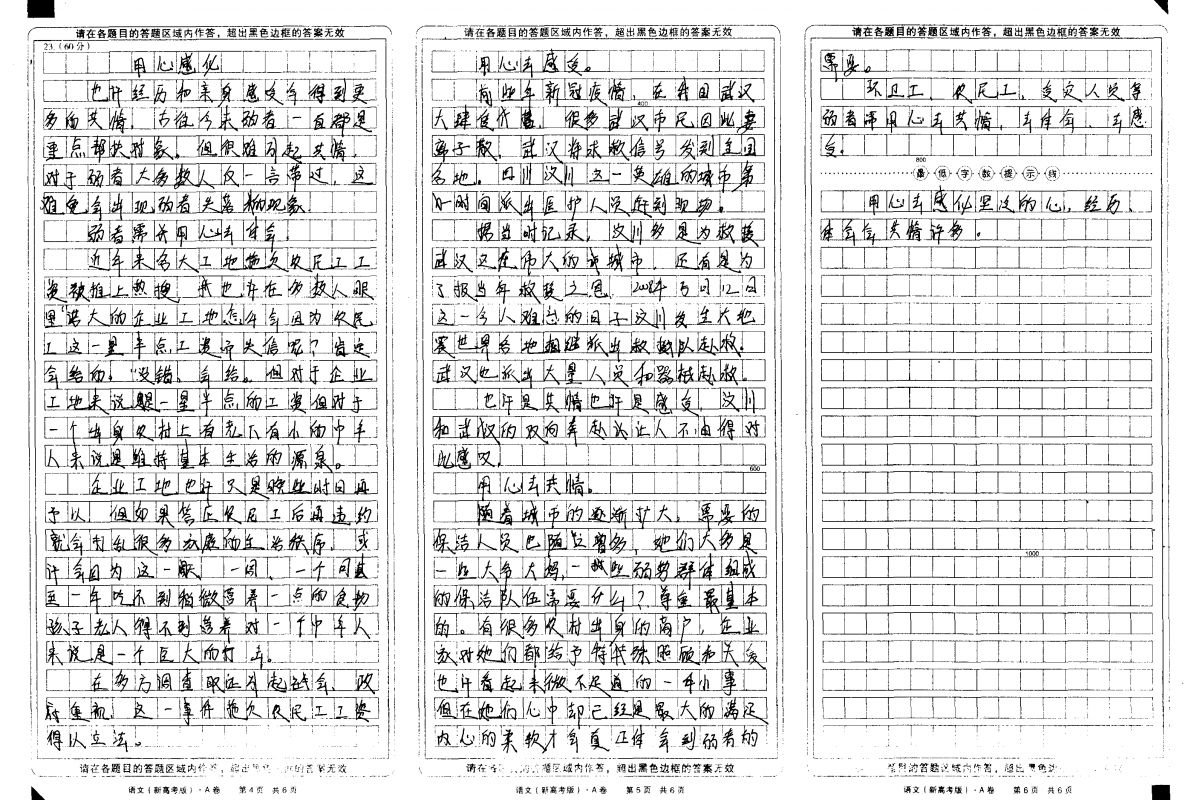 请在各题目的答题区域内作答，超出黑色边框的答案无效
23.（60分）
用心感化
也许经历和亲身感受会得到更
多的共情，古往今来弱者一直都是
重点帮扶对象。但很难引起共情，
对于弱者大多数人仅一言带过，这
难免会出现弱者失落的现象
弱者需要用心去体会。
近年来各大工地拖欠农民工工
资被推上热搜，我也存在多数人眼
里诺大的企业工地怎么会因为农民
工这一星半点工资而失信呢？肯定
会给的。“没错，会给。但对于企业
工地来说是一星半点的工资但对于
一个出身农村上有老下有小的中年
人来说是维持基本生活的源泉。
企业工地也许只是晚些时日再
予以，但如果答应农民工后再违约
就会打乱很多家庭的生活秩序，或
许会因为这一顿、一周、一个月甚
至一年吃不到稍微营养一点的食物
孩子老人得不到营养对一个中年人
来说是一个巨大的打击。
在多方调查取证引起社会、政
府重视，这一事件拖欠农民工工资
得以立法。
请在各题目的答题区域内作答，超出黑色边框的答案无效
语文（新高考版）·A卷 第4页 共6页
请在各题目的答题区域内作答，超出黑色边框的答案无效
用心去感受。
前些年新冠疫情，在我国武汉
400
大肆传播，很多武汉市民因此妻
离子散，武汉将求救信号发到全国
各地。四川汶川这一英雄的城市第
一时间派出医护人员赶到现场。
据当时记录，汶川多是为救援
武汉这座伟大的城市，还有是为
了报当年救援之恩，2008年5月12日
这一令人难忘的日子汶川发生大地
震世界各地相继派出救援队赴救。
武汉也派出大量人员和器械赴救。
也许是共情也许是感受，汶川
和武汉的双向奔赴让人不由得对
此感叹。
600
用心去共情。
随着城市的逐渐扩大，需要的
保洁人员也随之增多，她们大多是
一些大爷大妈，一些弱势群体组成
的保洁队伍需要什么？尊重最基本
的。有很多农村出身的商户，企业
家对她们都给予特殊照顾和关爱
也许看起来微不足道的一件小事
但在她们心中却已经是最大的满足
内心的柔软才会真正体会到弱者的
请在各题目的答题区域内作答，超出黑色边框的答案无效
语文（新高考版）·A卷 第5页 共6页
请在各题目的答题区域内作答，超出黑色边框的答案无效
需要。
环卫工，农民工，这交人员等
弱者需用心去共情，去体会，去感
受。
800
最低字数提示线
用心去感化黑泛的心，经历、
体会会共情许多。
1000
的答题区域内作答，超出黑色边
语文（新高考版）·A卷 第6页 共6页